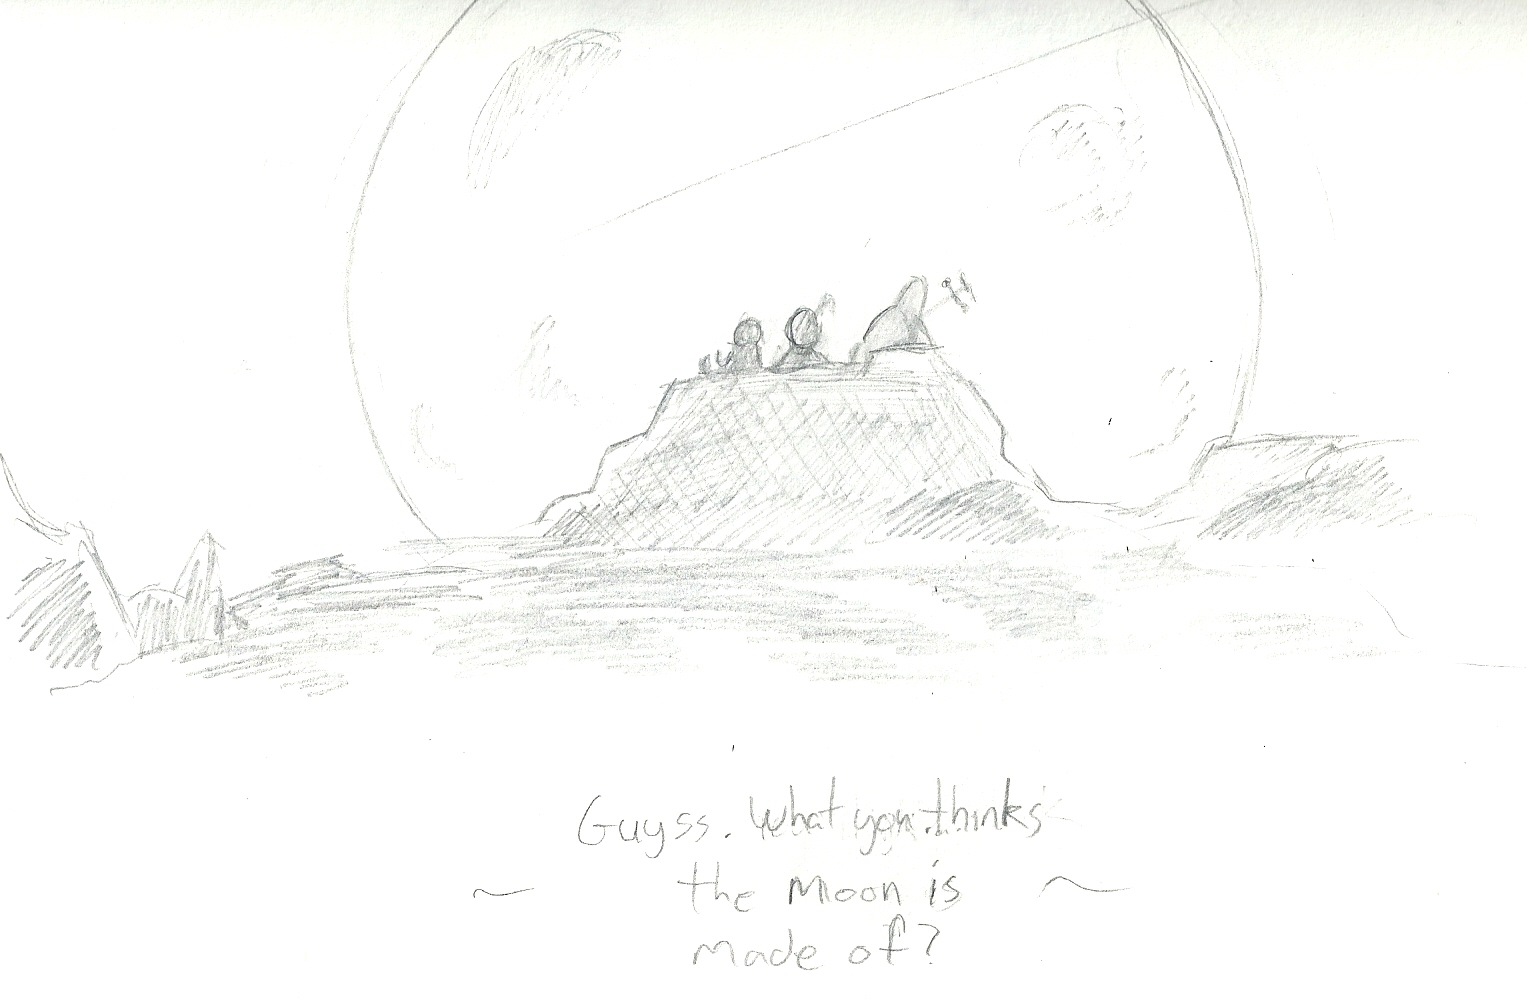 Guyss. What you thinks
~ the Moon is ~
made of?